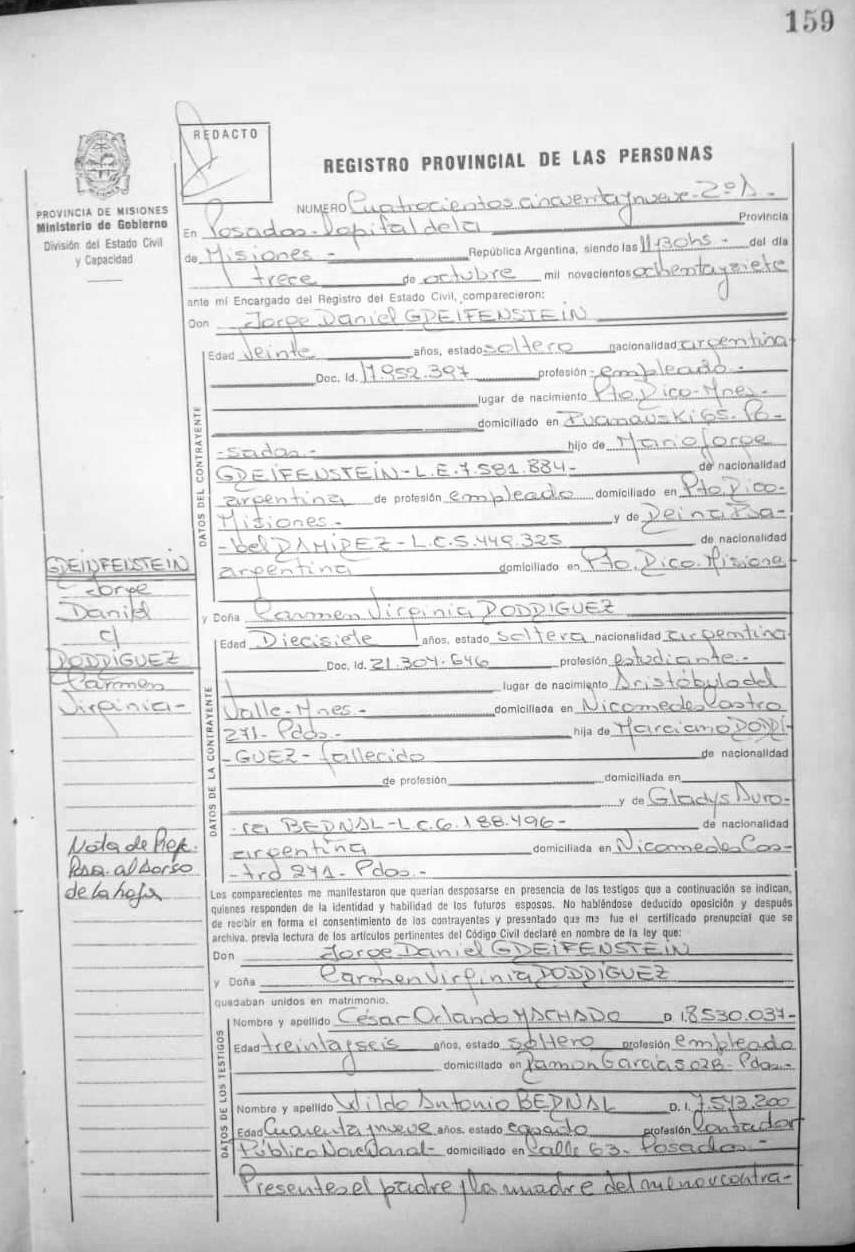 159
REDACTO
REGISTRO PROVINCIAL DE LAS PERSONAS
PROVINCIA DE MISIONES
Ministerio de Gobierno
División del Estado Civil
y Capacidad
NUMERO Cuatrocientos cincuenta y nueve - 2º
En Posadas - Capital de la Provincia
de Misiones - República Argentina, siendo las 11 30 hs - del día
trece de octubre mil novecientos ochenta y siete
ante mí Encargado del Registro del Estado Civil, comparecieron:
Don Jorge Daniel GREIFENSTEIN
DATOS DEL CONTRAYENTE
Edad Veinte años, estado soltero nacionalidad argentina
Doc. Id. 17.952.397 profesión - empleado -
lugar de nacimiento Pto. Rico - Mnes -
domiciliado en 65 - Po-
-sadas - hijo de Mario Jorge
GREIFENSTEIN - L.E. 7.581.884 - de nacionalidad
argentina de profesión empleado domiciliado en Pto. Rico -
Misiones - y de Reina Isa-
-bel RAMIREZ - L.C. 5.449.325 de nacionalidad
argentina domiciliado en Pto. Rico. Misiones
y Doña Carmen Virginia RODRIGUEZ
DATOS DE LA CONTRAYENTE
Edad Diecisiete años, estado soltera nacionalidad argentina
Doc. Id. 21.304.646 profesión estudiante -
lugar de nacimiento Aristóbulo del
Valle - Mnes - domiciliada en Nicomedes Castro
271 - Pdas - hija de Marciano RODRI-
-GUEZ - fallecido de nacionalidad
de profesión domiciliada en
y de Gladys Auro-
-ra BERNAL - L.C. 6.188.496 - de nacionalidad
argentina domiciliada en Nicomedes Cas-
-tro 271 - Pdas -
GREINFENSTEIN
Jorge
Daniel
c/
RODRIGUEZ
Carmen
Virginia -
Nota de Ref.
Psa. al dorso
de la hoja
Los comparecientes me manifestaron que querían desposarse en presencia de los testigos que a continuación se indican,
quienes responden de la identidad y habilidad de los futuros esposos. No habiéndose deducido oposición y después
de recibir en forma el consentimiento de los contrayentes y presentado que me fue el certificado prenupcial que se
archiva, previa lectura de los artículos pertinentes del Código Civil declaré en nombre de la ley que:
Don Jorge Daniel GREIFENSTEIN
y Doña Carmen Virginia RODRIGUEZ
quedaban unidos en matrimonio.
DATOS DE LOS TESTIGOS
Nombre y apellido César Orlando MACHADO D. I. 8.530.037 -
Edad treinta y seis años, estado soltero profesión empleado
domiciliado en Ramon Garcia 5028 - Pdas -
Nombre y apellido Wildo Antonio BERNAL D. I. 7.543.200
Edad Cuarenta y nueve años, estado casado profesión Contador
Público Nacional - domiciliado en Calle 63 - Posadas -
Presentes el padre y la madre del menor contra-